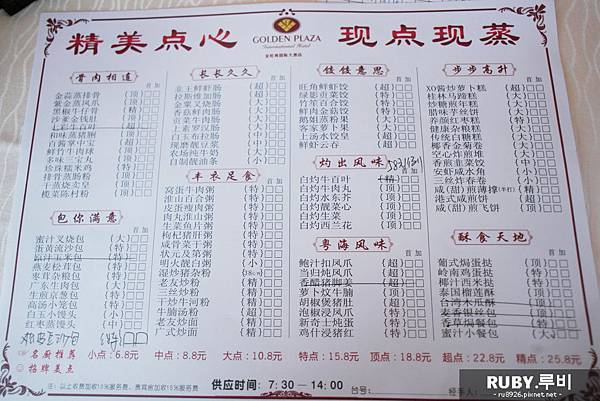 精美点心
GOLDEN PLAZA
International Hotel
现点现蒸
骨肉相连
首 加
金蒜蒸排骨 (顶)
紫金蒸凤爪 (顶)
黑椒牛仔骨 (精)
沙爹金钱肚 (顶)
七彩牛百叶 (超)
和味蒸猪脷 (顶)
百酱掌中宝 (超)
鲜竹牛肉球 (大)
多味三宝丸 (顶)
珍珠糯米鸡 (特)
排骨蒸肠粉 (顶)
干蒸烧卖皇 (顶)
榄菜陈村粉 (顶)
包你满意
首 加
蜜汁叉烧包 (大)
蛋黄流沙包 (特)
燕麦松茸包 (特)
枣茸杂粮包 (特)
广东生肉包 (大)
生煎京葱包 (特)
高汤小笼包 (特)
白玉小馒头 (小)
红枣蒸馒头 (小)
长长久久
首 加
韭王鲜虾肠 (超)
拉斯维加肠 (超)
金菇叉烧肠 (大)
香菇鲜肉肠 (大)
贡菜牛肉肠 (大)
上素罗汉肠 (大)
日式玉子豆腐
现磨豆浆
农场纯牛奶 (中)
自制靓油条 (小)
丰衣足食
首 加
窝蛋牛肉粥 (特)
淮山百合粥 (特)
肉丸淮山粥 (特)
生菜鱼片粥 (特)
枸杞猪肝粥 (特)
咸骨菜干粥 (特)
状元及第粥 (特)
明火靓白粥 (小)
湿炒猪杂粉 (38cn)
老友炒粉 (精)
三丝炒粉 (精)
干炒牛河粉 (精)
牛腩汤粉 (超)
老友炒面 (精)
广式炒面 (精)
饺饺意思
首 加
旺角鲜虾饺 (超)
绿影贡菜饺 (特)
竹笙百合饺 (特)
鲜肉金菇饺 (特)
鹅姐蒸粉果 (大)
客家萝卜果 (大)
上汤水饺皇 (超)
鲜虾云吞 (超)
灼出风味
首 加
白灼牛百叶 (精)
白灼牛肉丸 (顶)
白灼水东芥 (顶)
白灼靓菜心 (顶)
白灼生菜 (顶)
白灼西兰花 (顶)
粤海风味
首 加
鲍汁扣凤爪 (超)
当归炖凤爪 (超)
香醋猪脚姜 (超)
萝卜炆牛腩 (顶)
胡椒煲猪肚 (超)
泡椒浸凤爪 (特)
新奇士炖蛋 (特)
鸡什浸猪红 (特)
步步高升
首 加
XO酱炒萝卜糕 (超)
桂林马蹄糕 (大)
炒糖煎年糕 (大)
腊味芋丝饼 (大)
养颜红枣糕 (大)
健康杂粮糕 (大)
传统白糖糕 (大)
椰香金菊卷 (大)
空心炸煎堆 (大)
香煎韭菜饺 (中)
皮虾咸水角 (小)
三丝炸春卷 (小)
咸(甜)煎薄撑(手打) (精)
港式咸煎饼 (超)
咸(甜)煎飞饼 (顶)
酥食天地
首 加
葡式焗蛋挞 (顶)
岭南鸡蛋挞 (特)
椰汁西米挞 (特)
泰国榴莲酥 (顶)
台湾木瓜酥 (顶)
麦香银丝包 (顶)
香草焗餐包 (特)
蜜汁小餐包 (大)
名厨推荐
招牌美点
小点:6.8元 中点:8.8元 大点:10.8元 特点:15.8元 顶点:18.8元 超点:22.8元 精点:25.8元
供应时间:7:30 — 14:00
台号:
经手人:
RUBY.루비
- ru8926.pixnet.net -